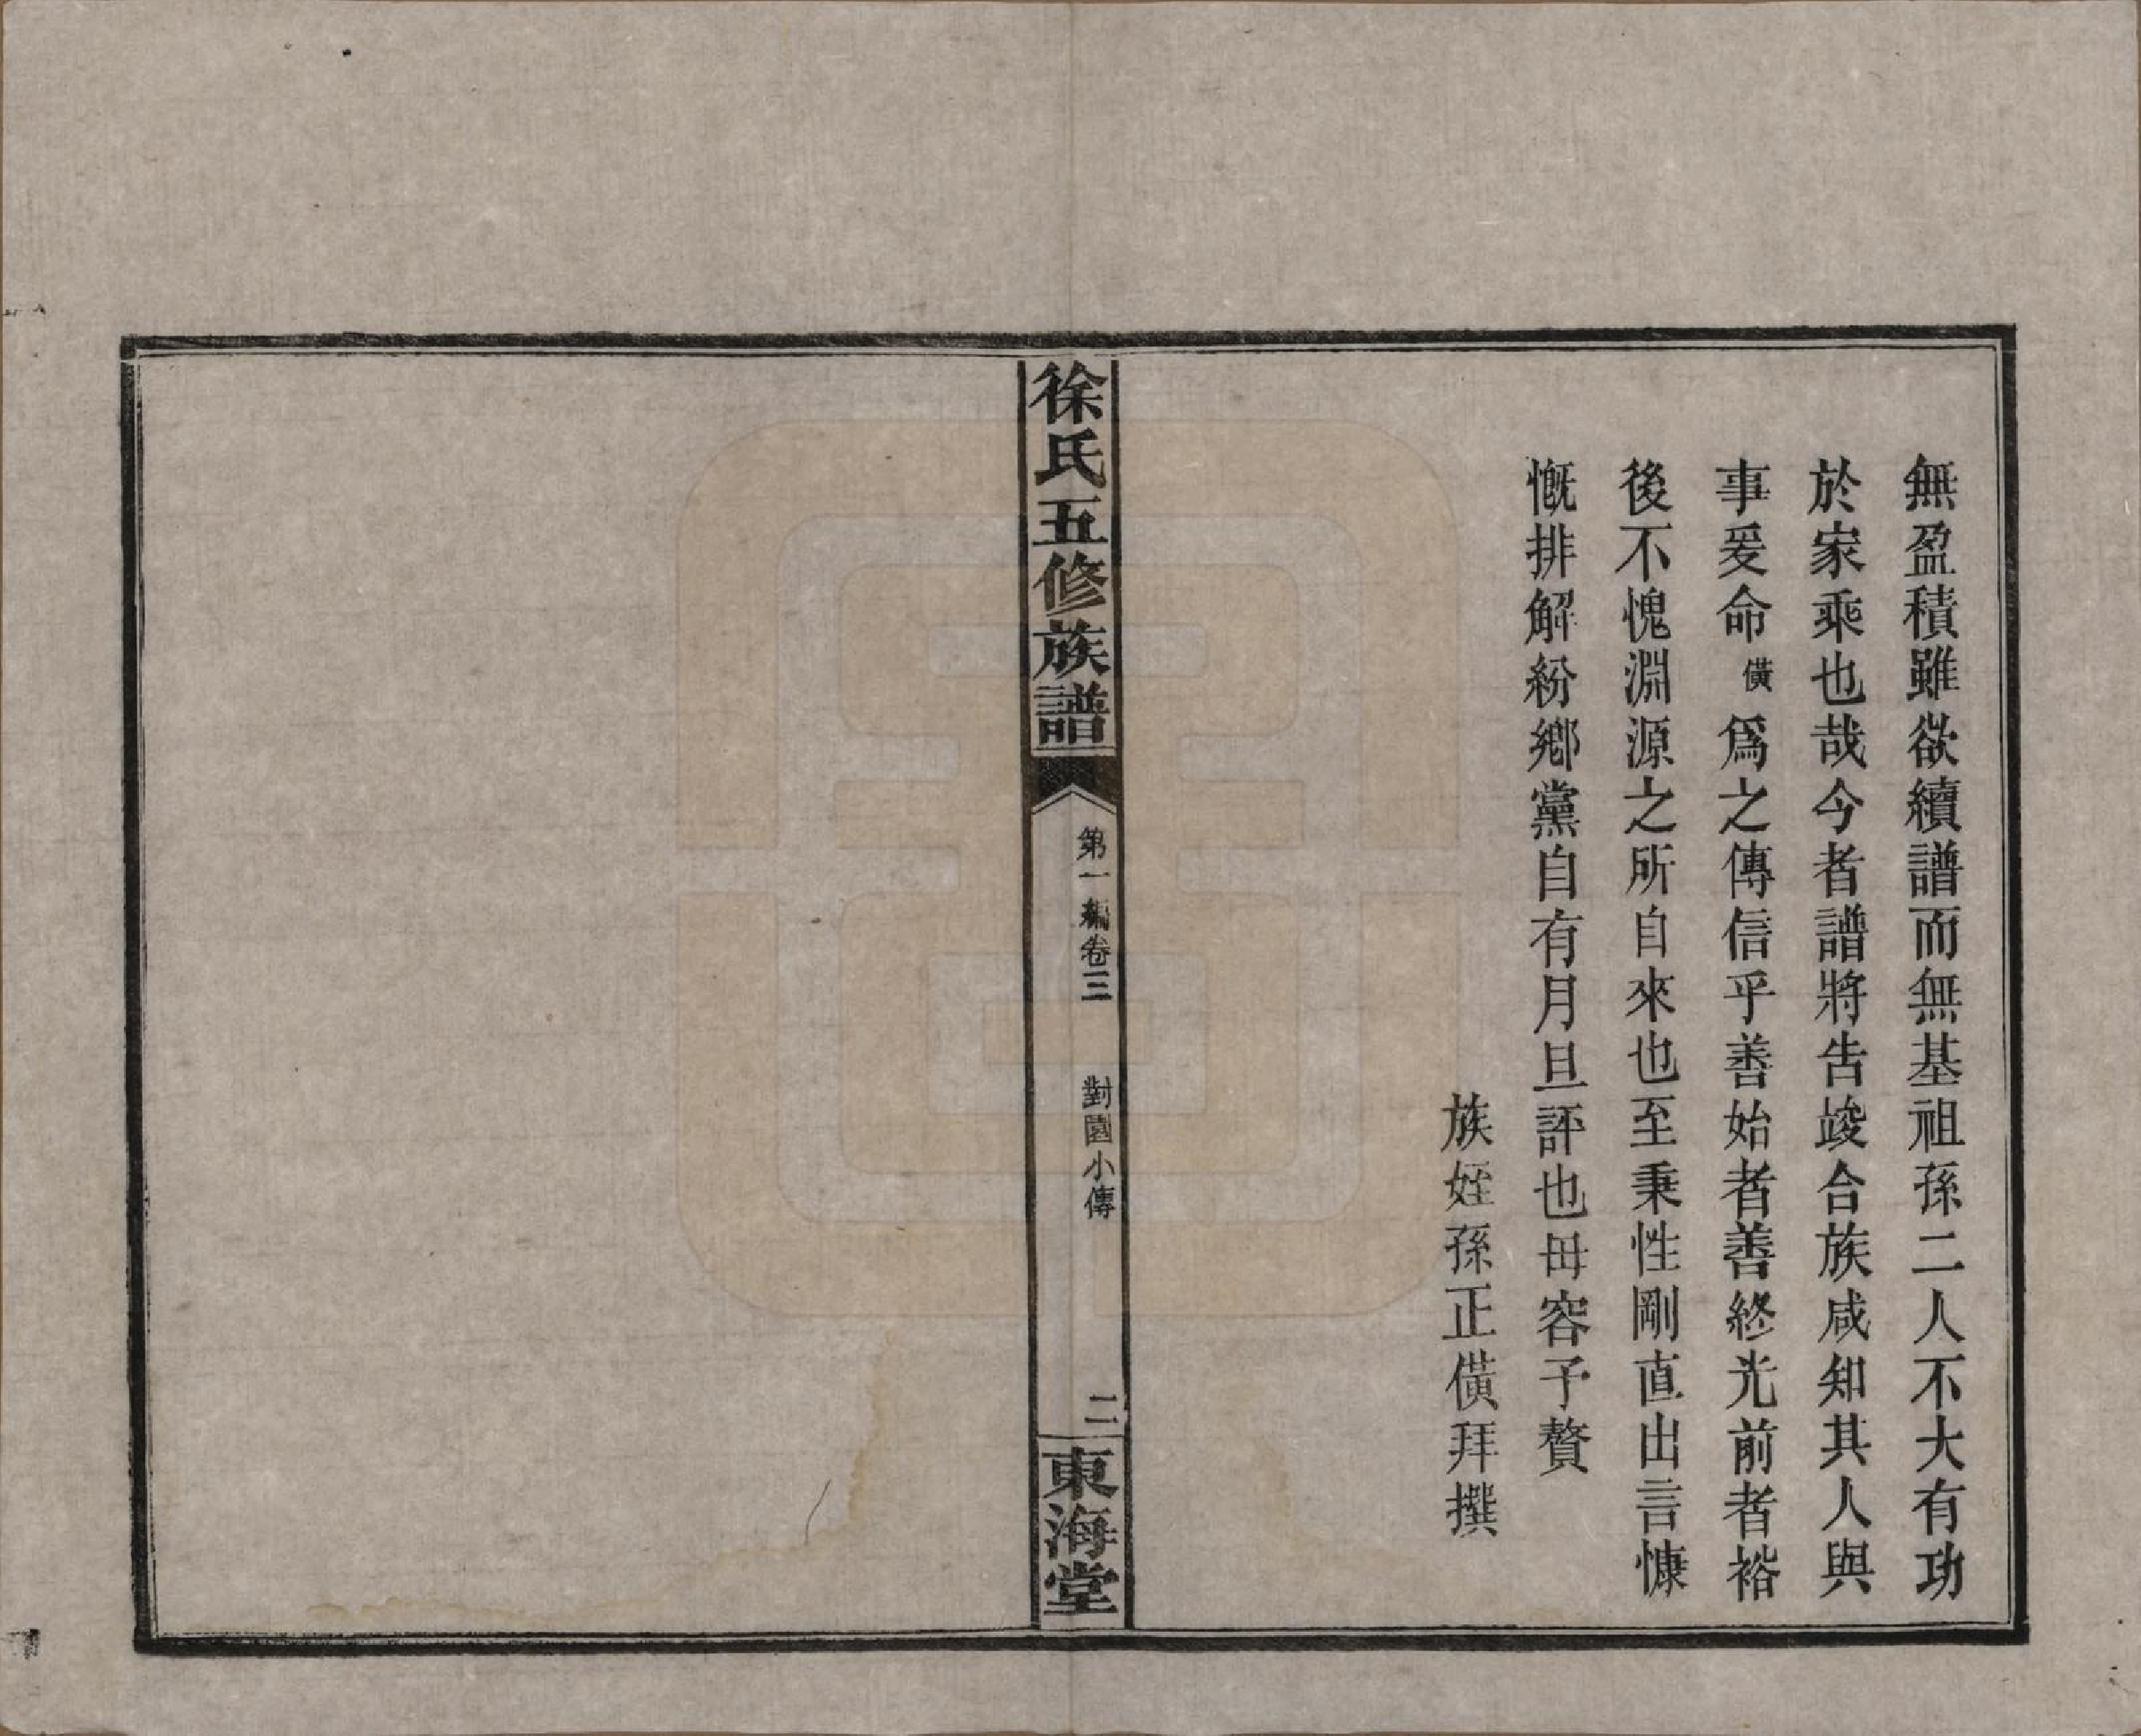 無盈積雖欲續譜而無基祖孫二人不大有功
於家乘也哉今者譜將告竣合族咸知其人與
事爰命僙爲之傳信乎善始者善終光前者裕
後不愧淵源之所自來也至秉性剛直出言慷
慨排解紛鄉黨自有月旦評也毋容予贅
族姪孫正僙拜撰
徐氏五修族譜
第一編卷三
對園小傳
二
東海堂